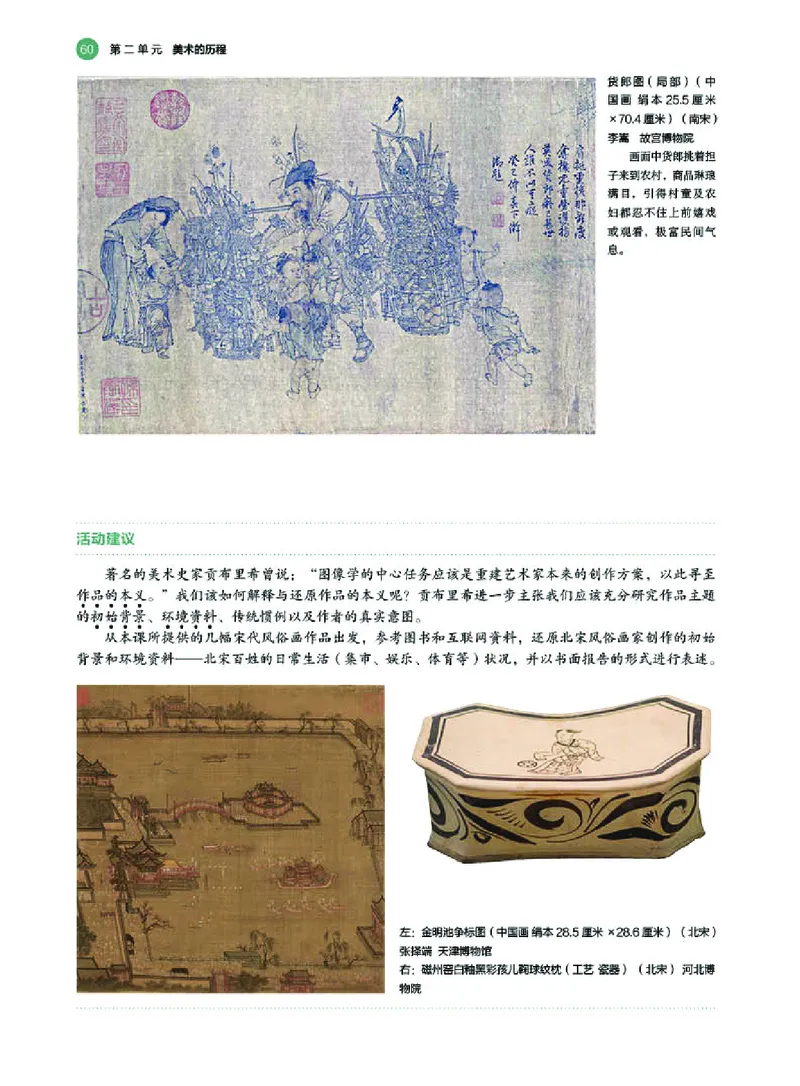 60 第二单元 美术的历程
货郎图（局部）（中
国画 绢本 25.5 厘米
×70.4 厘米）（南宋）
李嵩 故宫博物院
画面中货郎挑着担
子来到农村，商品琳琅
满目，引得村童及农
妇都忍不住上前嬉戏
或观看，极富民间气
息。
活动建议
著名的美术史家贡布里希曾说：“图像学的中心任务应该是重建艺术家本来的创作方案，以此寻至
作品的本义。”我们该如何解释与还原作品的本义呢？贡布里希进一步主张我们应该充分研究作品主题
的初始背景、环境资料、传统惯例以及作者的真实意图。
从本课所提供的几幅宋代风俗画作品出发，参考图书和互联网资料，还原北宋风俗画家创作的初始
背景和环境资料——北宋百姓的日常生活（集市、娱乐、体育等）状况，并以书面报告的形式进行表述。
左：金明池争标图（中国画 绢本 28.5 厘米 ×28.6 厘米）（北宋）
张择端 天津博物馆
右：磁州窑白釉黑彩孩儿鞠球纹枕（工艺 瓷器）（北宋） 河北博
物院